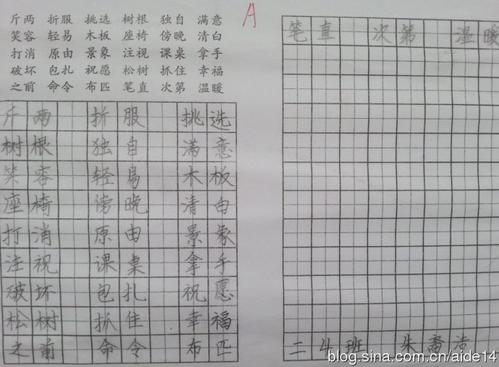 斤两 折服 挑选 树根 独自 满意
笑容 轻易 木板 座椅 傍晚 清白
打消 原由 景象 注视 课桌 拿手
破坏 包扎 祝愿 松树 抓住 幸福
之前 命令 布匹 笔直 次第 温暖
A
斤两 折服 挑选
树根 独自 满意
笑容 轻易 木板
座椅 傍晚 清白
打消 原由 景象
注视 课桌 拿手
破坏 包扎 祝愿
松树 抓住 幸福
之前 命令 布匹
笔直 次第 温暖
二4班 朱裔
blog.sina.com.cn/aide14